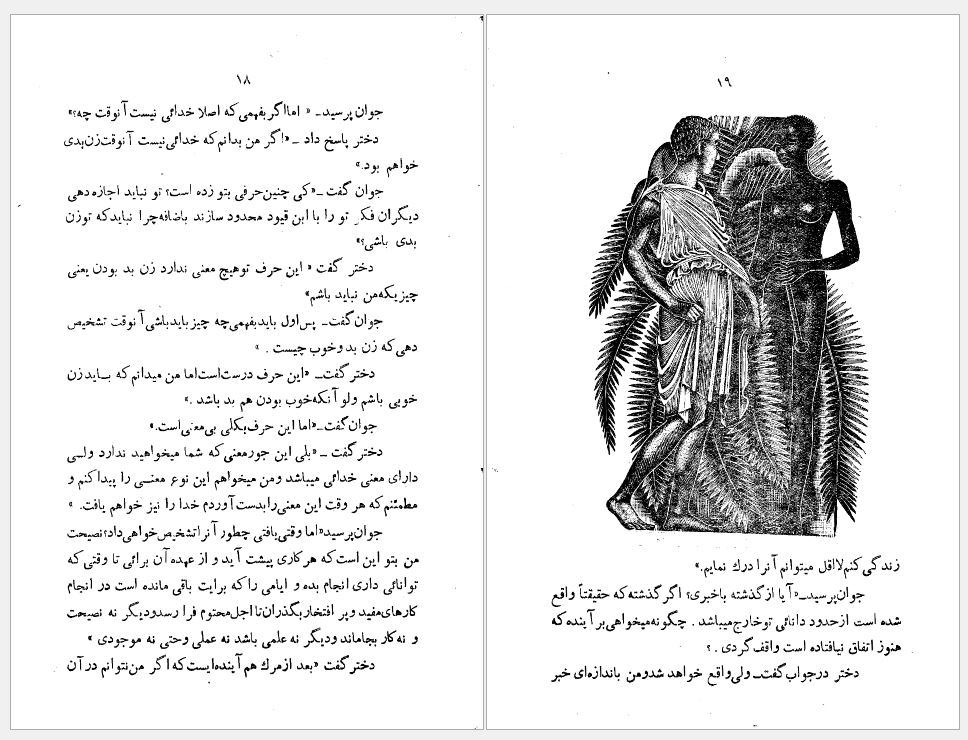 ۱۸
جوان پرسید ـ « اما اگر بفهمی که اصلا خدائی نیست آنوقت چه؟»
دختر پاسخ داد ـ «اگر من بدانم که خدائی نیست آنوقت زن بدی
خواهم بود.»
جوان گفت ـ «کی چنین حرفی بتو زده است؟ تو نباید اجازه دهی
دیگران فکر تو را با این قیود محدود سازند باضافه چرا نباید که تو زن
بدی باشی؟»
دختر گفت « این حرف تو هیچ معنی ندارد زن بد بودن یعنی
چیزیکه من نباید باشم»
جوان گفت ـ پس اول باید بفهمی چه چیز باید باشی آنوقت تشخیص
دهی که زن بد و خوب چیست . »
دختر گفت ـ «این حرف درست است اما من میدانم که بـاید زن
خوبی باشم ولو آنکه خوب بودن هم بد باشد .»
جوان گفت ـ «اما این حرف بکلی بی معنی است.»
دختر گفت ـ «بلی این جور معنی که شما میخواهید ندارد ولـی
دارای معنی خدائی میباشد و من میخواهم این نوع معنـی را پیدا کنم و
مطمئنم که هر وقت این معنی را بدست آوردم خدا را نیز خواهم یافت. »
جوان پرسید «اما وقتی یافتی چطور آنرا تشخیص خواهی داد؟ نصیحت
من بتو این است که هر کاری پیشت آید و از عهده آن برائی تا وقتی که
توانائی داری انجام بده و ایامی را که برایت باقی مانده است در انجام
کارهای مفید و پر افتخار بگذران تا اجل محتوم فرا رسد و دیگر نه نصیحت
و نه کار بجاماند و دیگر نه علمی باشد نه عملی و حتی نه موجودی »
دختر گفت «بعد از مرك هم آینده ایست که اگر من نتوانم در آن
۱۹
زندگی کنم لااقل میتوانم آنرا درك نمایم.»
جوان پرسید ـ «آیا از گذشته باخبری؟ اگر گذشته که حقیقتاً واقع
شده است از حدود دانائی تو خارج میباشد . چگونه میخواهی بر آینده که
هنوز اتفاق نیافتاده است واقف گردی . ؟
دختر درجواب گفت ـ ولی واقع خواهد شد و من باندازه ای خبر